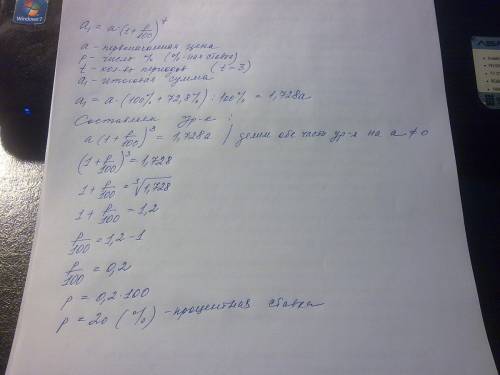 Windows 7
a₁ = a·(1 + p/100)^t
a - первоначальная цена
p - число % (%-ная ставка)
t - кол-во периодов (t = 3)
a₁ - итоговая сумма
a₁ = a·(100% + 72,8%) : 100% = 1,728a
Составляем ур-е :
a(1 + p/100)³ = 1,728a | делим обе части ур-я на a ≠ 0
(1 + p/100)³ = 1,728
1 + p/100 = ³√1,728
1 + p/100 = 1,2
p/100 = 1,2 - 1
p/100 = 0,2
p = 0,2·100
p = 20 (%) - процентная ставка